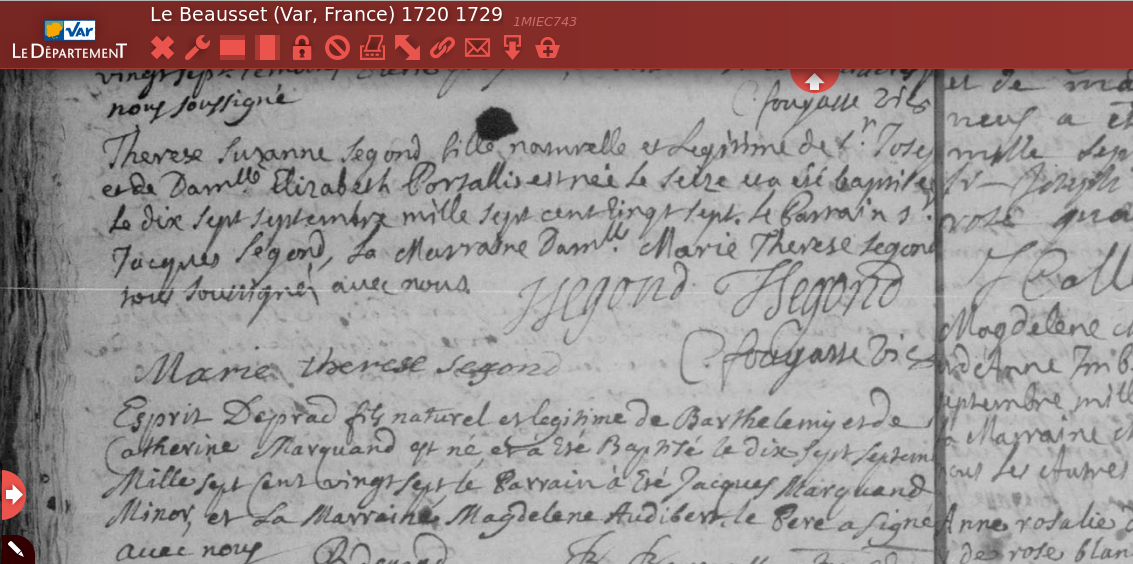 Le Beausset (Var, France) 1720 1729
1MIEC743
VAR
LE DÉPARTEMENT
vingt sept
nous soussigné
C. fougasse vic
Therese Suzanne Segond fille naturelle et Legitime de Sr. Jose
et de Damlle Elizabeth Portallis est née Le seize et a esté baptisé
Le dix sept septembre mille sept cent vingt sept. Le Parrain s.
Jacques Segond, La Marraine Damlle Marie Therese Segond
tous soussignés avec nous.
JSegond JSegond
Marie therese segond
C. fougasse vic
Esprit Deprad fils naturel et legitime de Barthelemy et de
Catherine Marquand est né et a Eté Baptisé le dix sept septem
Mille sept Cent vingt sept le Parrain à Eté Jacques Marquand
Minor, et La Marraine Magdelene Audibert, le Pere a signé
avec nous
et de
neuf a
mille sep
Joseph
rose
Magdelene
d'Anne
septembre mill
la Marraine
Les Autres
Anne rosalie
de rose blan